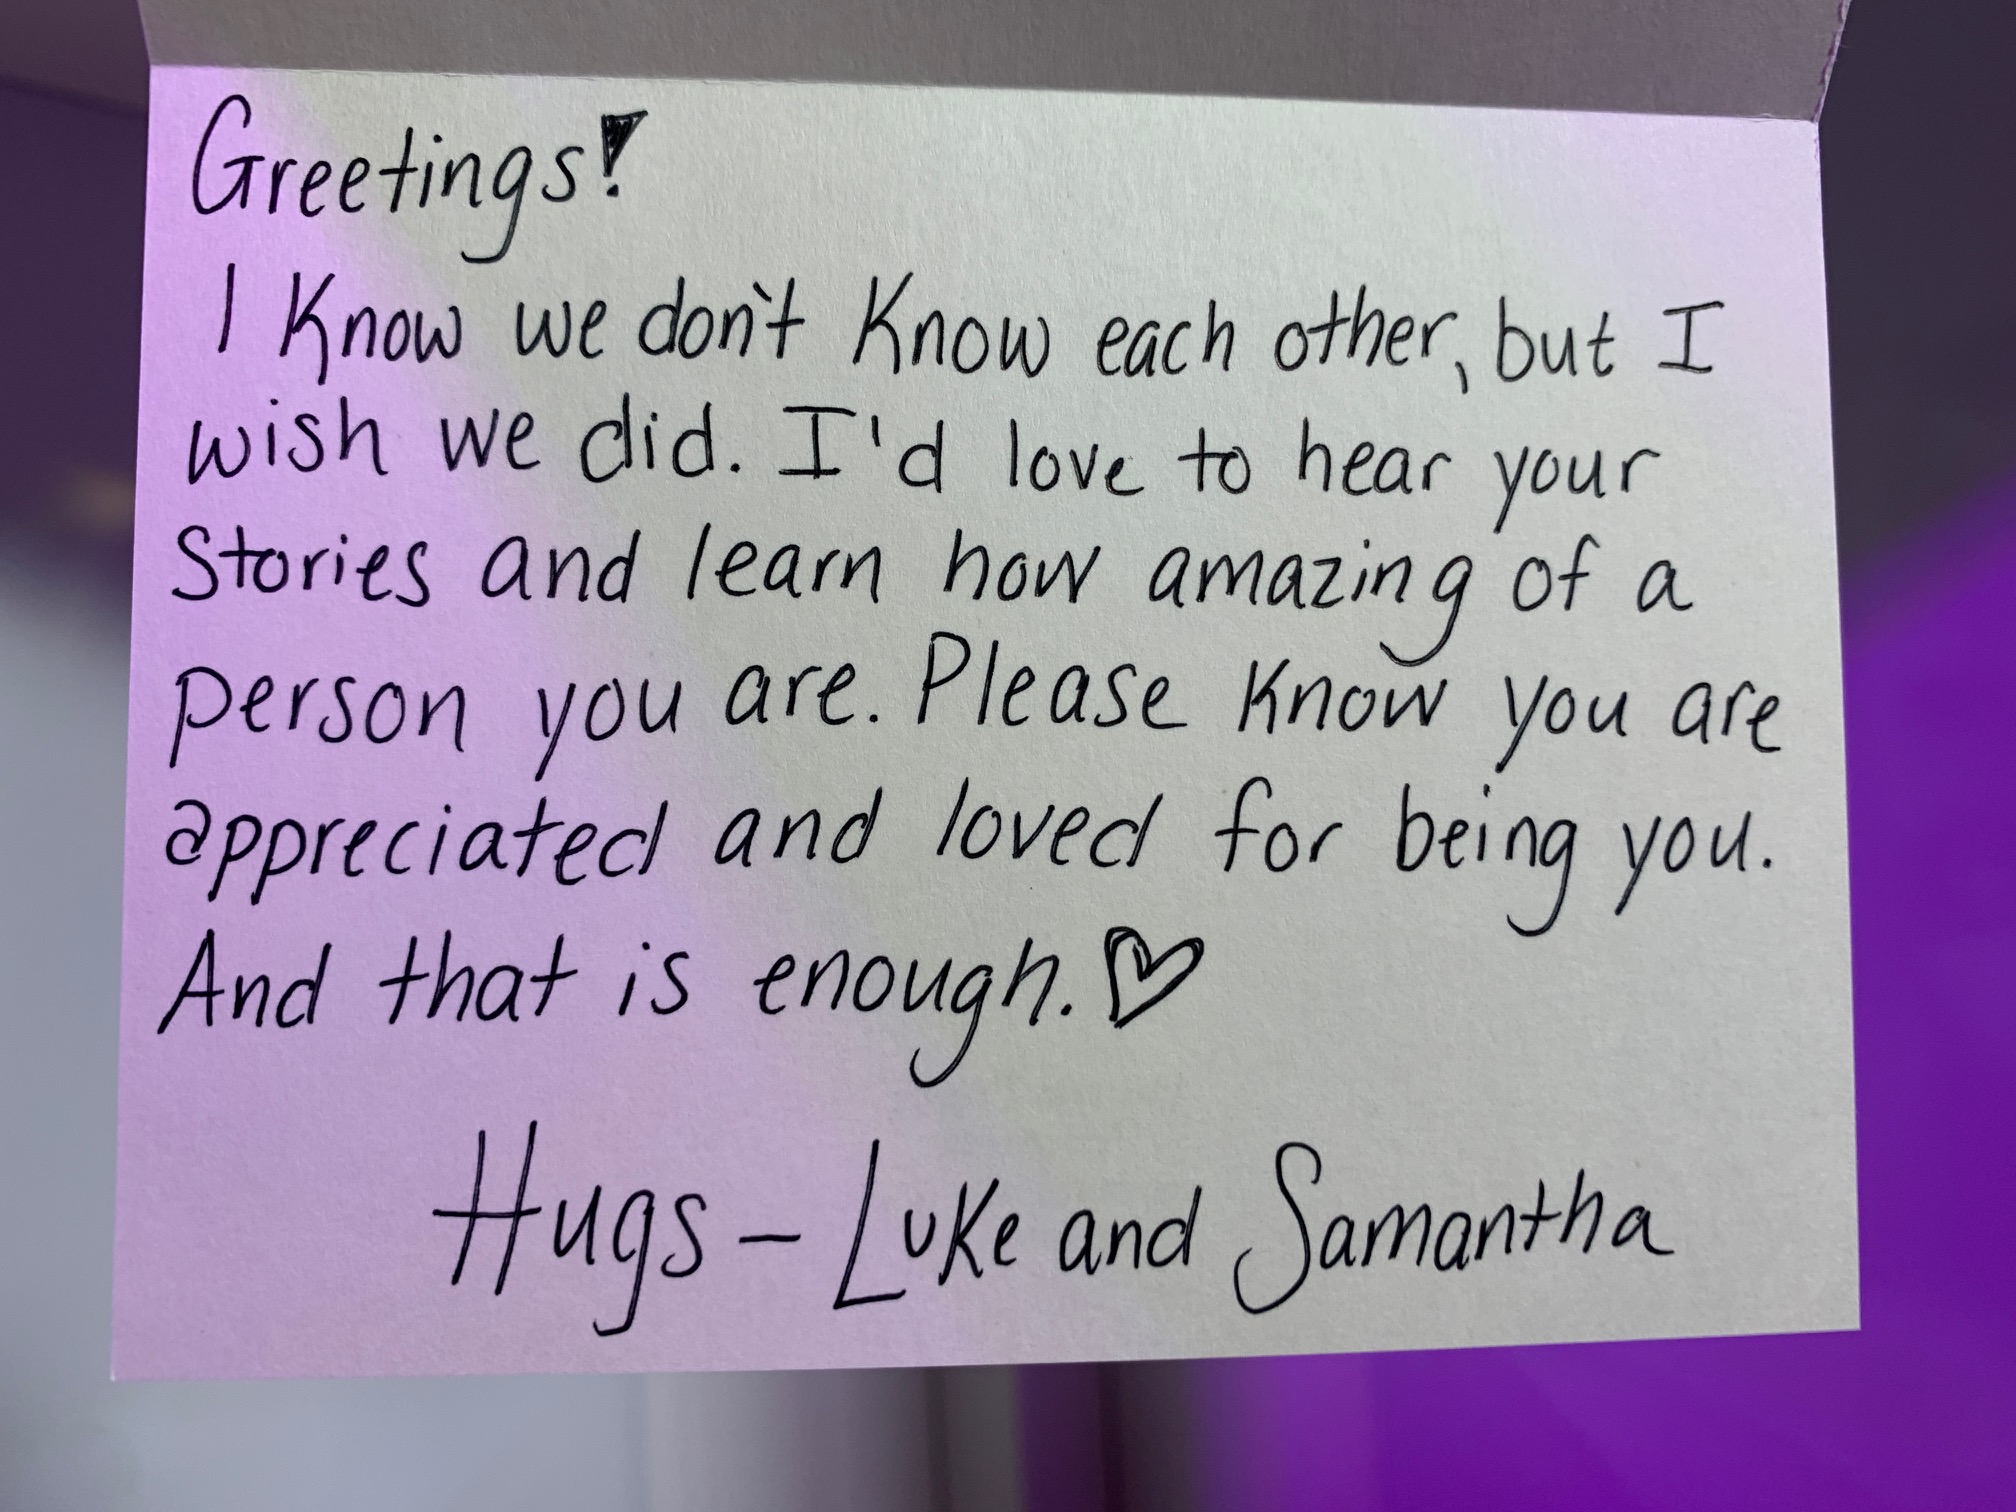 Greetings!
I Know we don't Know each other, but I
wish we did. I'd love to hear your
Stories and learn how amazing of a
person you are. Please Know you are
appreciated and loved for being you.
And that is enough.♡
Hugs – Luke and Samantha